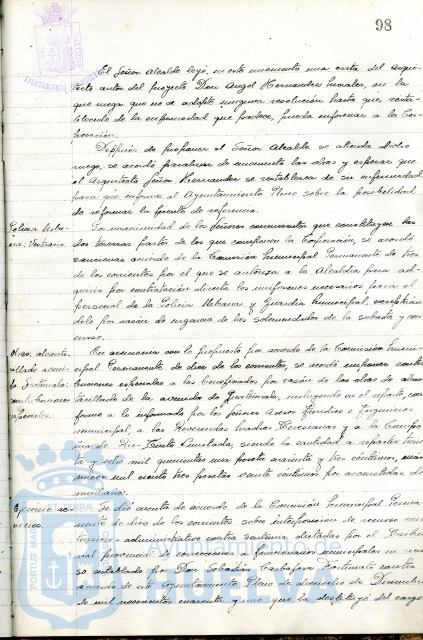 98
El Señor Alcalde leyó, en este momento una carta del Arqui-
tecto autor del proyecto Don Angel Hernandez Morales, en la
que ruega que no se adopte ninguna resolución hasta que resta-
blecido de la enfermedad que padece, pueda informar a la Cor-
poración.
Después de proponer el Señor Alcalde se atienda dicho
ruego, se acordó paralizar de momento las obras y esperar que
el Arquitecto Señor Hernandez se restablezca de su enfermedad
para que informe al Ayuntamiento Pleno sobre la posibilidad
de reformar la fuente de referencia.
Policia Urba-
na: Vestuario
La unanimidad de los Señores concurrentes que constituyen las
dos terceras partes de los que componen la Corporación, se acordó
sancionar acuerdo de la Comisión Municipal Permanente de tres
de los corrientes por el que se autoriza a la Alcaldia para ad-
quirir por contratación directa los uniformes necesarios para el
personal de la Policia Urbana y Guardia Municipal, exceptuán-
dolo por razón de urgencia de las solemnidades de la subasta y con-
curso.
Obras: alcanta-
rillado avenida
contribuciones
especiales.
En armonia con lo propuesto por acuerdo de la Comisión Muni-
cipal Permanente de diez de los corrientes, se acordó imponer contri-
buciones especiales a los beneficiados por razón de las obras de alcan-
tarillado de la avenida de, incluyendo en el reparto, con-
forme a lo informado por los Señores Asesor Juridico e Ingeniero
municipal, a las Reverendas Madres Teresianas y a la Compa-
ñia de Rio-Tinto Limitada, siendo la cantidad a repartir trein-
ta y ocho mil quinientas una peseta cuarenta y tres centimos,
nueve mil ciento tres pesetas centimos por acometidas do-
miciliarias.
Ejercicio ac-
ciones.
Se dio cuenta de acuerdo de la Comisión Municipal Perma-
nente de diez de los corrientes sobre interposición de recurso con-
tencioso-administrativo contra sentencia dictada por el Tribu-
nal provincial de funcionarios municipales en recur-
so entablado por Don Sebastián contra
acuerdo de este Ayuntamiento Pleno de dieciocho de Diciembre
de mil novecientos cuarenta y uno que lo destituyó del cargo